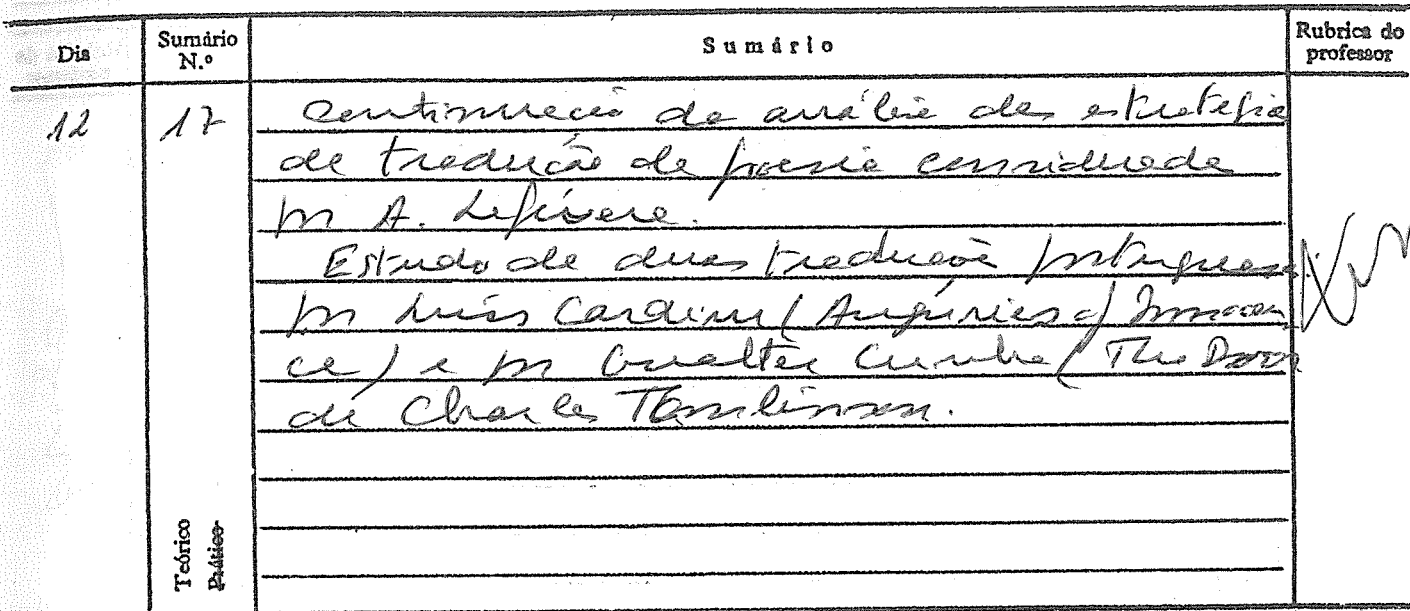 Dia Sumário N.º Sumário Rubrica do professor
12 17 Continuação da análise das estratégias
de tradução de poesia consideradas
por A. Lefevere.
Estudo de duas traduções portuguesas:
por Luís Cardim (Auguries of Innocen
ce) e por Gualter Cunha (The Door
de Charles Tomlinson.
Teórico
Prático